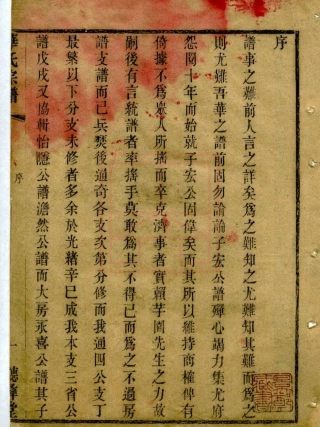 序
譜事之難前人言之詳矣為之難知之尤難知其難而為之
則尤難吾華之譜前因勿論論子宏公譜殫心竭力集尤府
怨閱十年而始就子宏公固偉矣而其所以維持商榷俾有
倚據不為眾人所搖而卒克濟事者實賴芋園先生之力故
嗣後有言統譜者率搖手莫敢為其不得已而為之不過房
譜支譜而已兵燹後通奇各支次第分修而我通四公支丁
最繁以下分支未修者多余於光緒辛巳成我本支三省公
譜戊戌又協輯怡隱公譜澹然公譜而大房永喜公譜其子
華氏宗譜
序
一